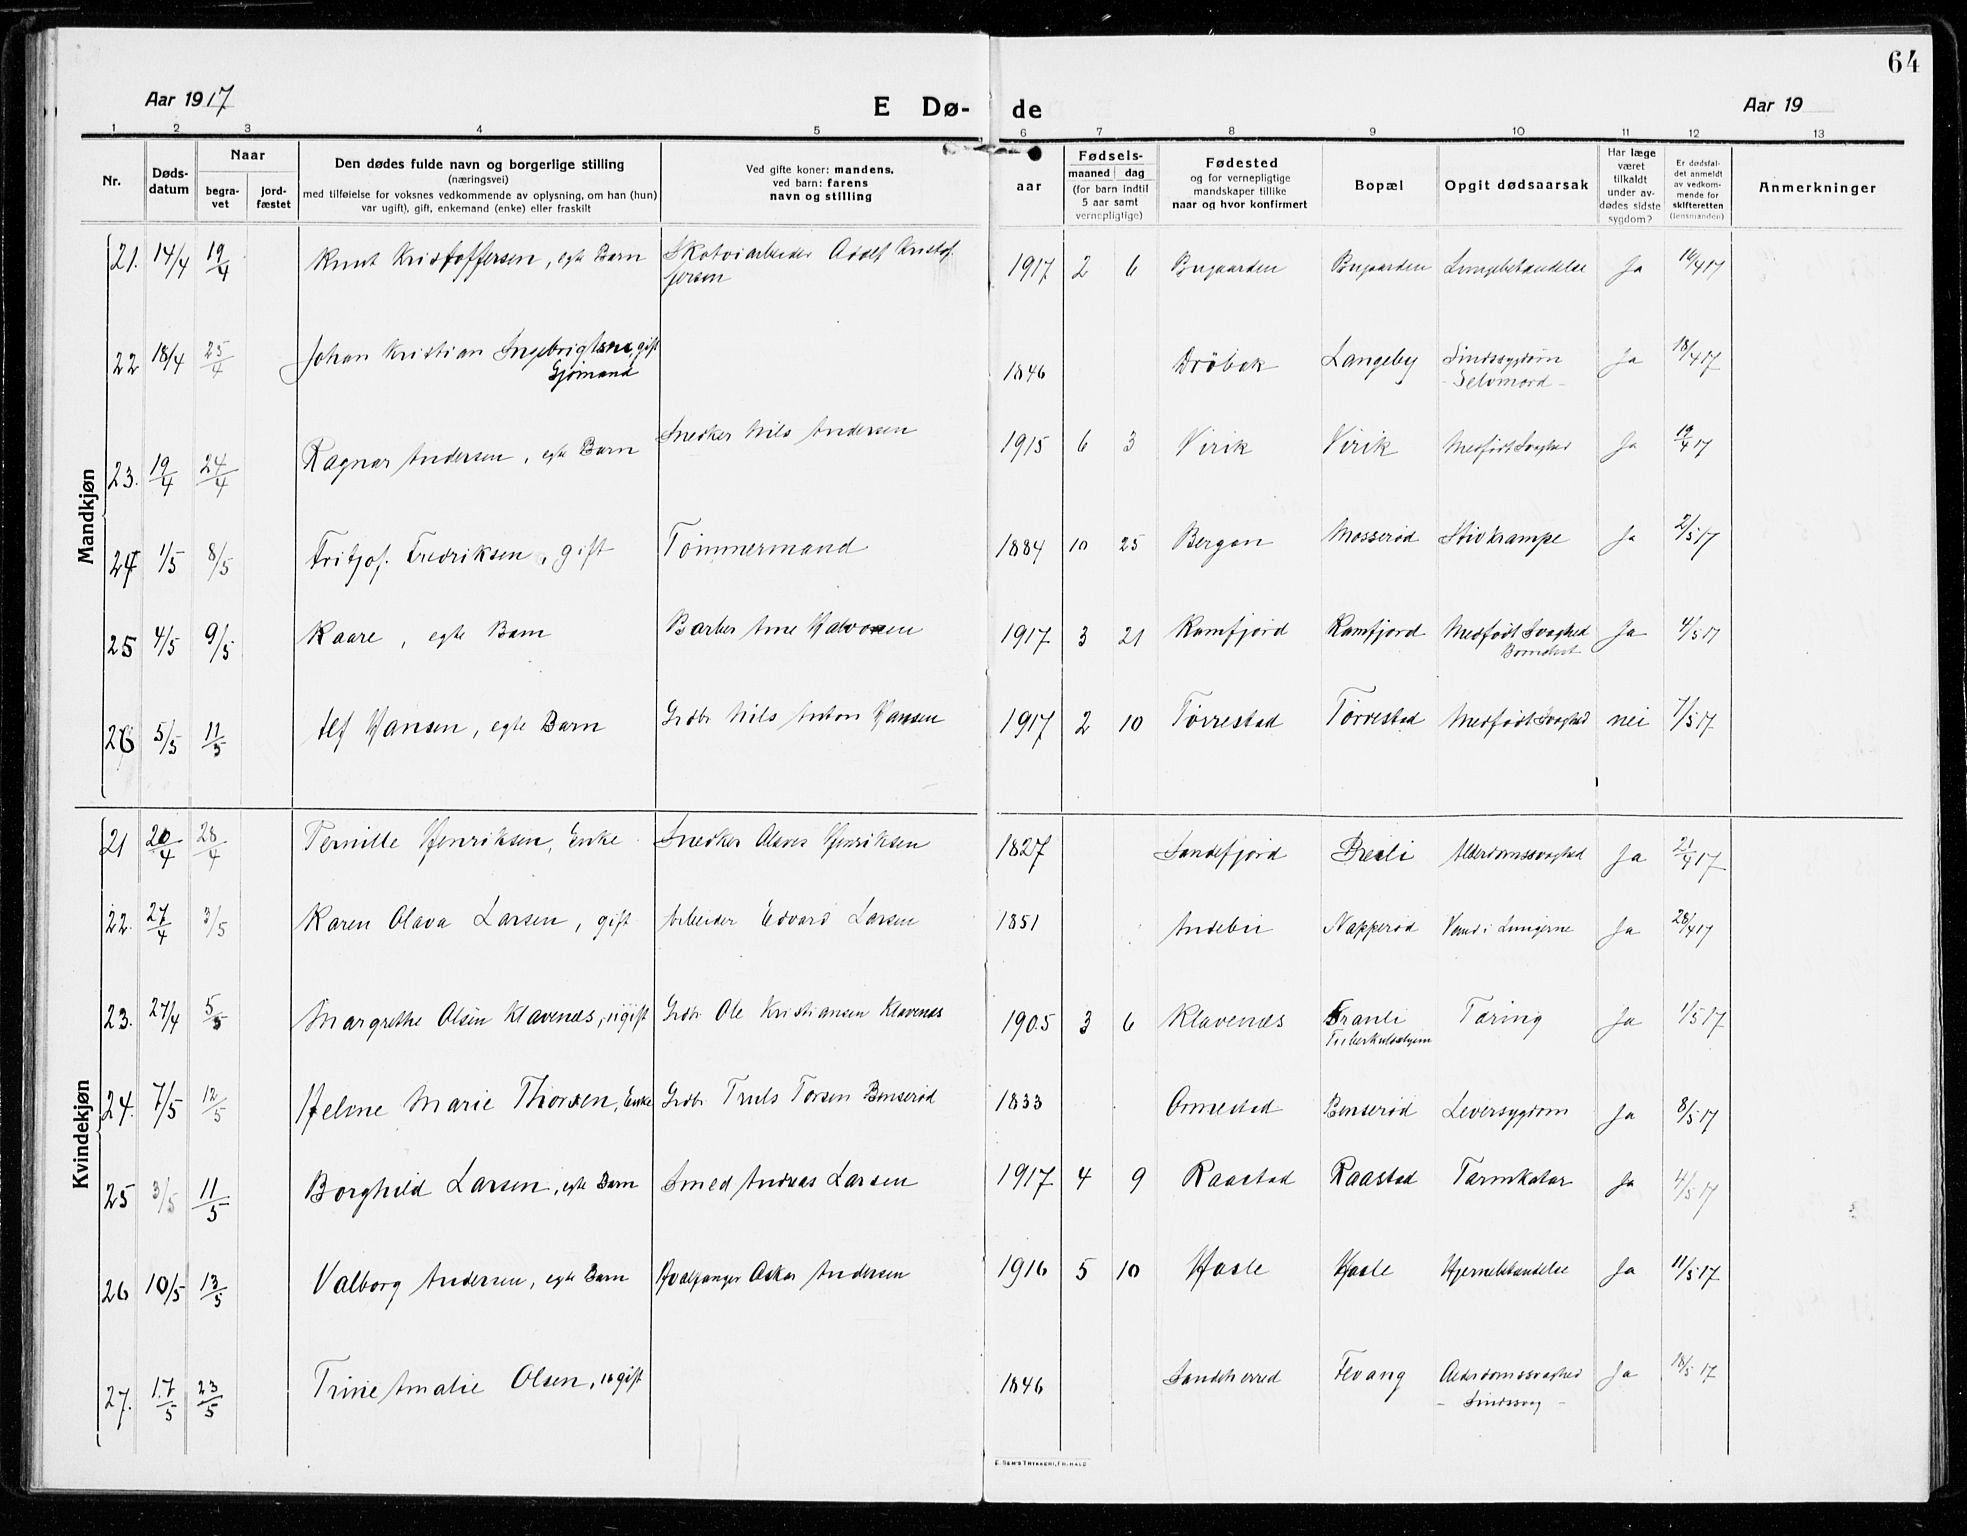 64
Aar 1917
E Dø- de
Aar 19
1 2 3 4 5 6 7 8 9 10 11 12 13
Nr.
Døds-
datum
Naar
begra-
vet
jord-
fæstet
Den dødes fulde navn og borgerlige stilling
(næringsvei)
med tilføielse for voksnes vedkommende av oplysning, om han (hun)
var ugift), gift, enkemand (enke) eller fraskilt
Ved gifte koner: mandens,
ved barn: farens
navn og stilling
aar
Fødsels-
maaned dag
(for barn indtil
5 aar samt
vernepligtige)
Fødested
og for vernepligtige
mandskaper tillike
naar og hvor konfirmert
Bopæl
Opgit dødsaarsak
Har læge
været
tilkaldt
under av-
dødes sidste
sygdom?
Er dødsfal-
det anmeldt
av vedkom-
mende for
skifteretten
(lensmanden)
Anmerkninger
Mandkjøn
21. 14/4 19/4 Knut Kristoffersen, egte Barn Skotøiarbeider Adolf Kristof-
fersen 1917 2 6 Bugaarden Bugaarden Lungebetændelse Ja 16/4 17
22 18/4 25/4 Johan Kristian Ingebrigtsen, gift
Sjømand 1846 Drøbak Langeby Sindssygdom
- Selvmord - Ja 18/4 17
23. 19/4 24/4 Ragnar Andersen, egte Barn Snedker Nils Andersen 1915 6 3 Virik Virik Medfødt Svaghed Ja 19/4 17
24 1/5 8/5 Fritjof Fredriksen, gift Tømmermand 1884 10 25 Bergan Mosserød Stivkrampe Ja 2/5 17
25 4/5 9/5 Kaare, egte Barn Barber Arne Halvorsen 1917 3 21 Kamfjord Kamfjord Medfødt Svaghed
Ja 4/5 17
26 5/5 11/5 Alf Hansen, egte Barn Grdbr Nils Anton Hansen 1917 2 10 Tørrestad Tørrestad Medfødt Svaghed nei 7/5 17
Kvindekjøn
21 20/4 28/4 Pernille Henriksen, Enke Snedker Olaves Henriksen 1827 Sandefjord Breili Alderdomssvaghed Ja 21/4 17
22. 27/4 3/5 Karen Olava Larsen, gift Arbeider Edvard Larsen 1851 Andebu Napperød Vand i Lungerne Ja 28/4 17
23. 27/4 5/5 Margrethe Olsen Klavenæs, ugift Grdbr. Ole Kristiansen Klavenæs 1905 3 6 Klavenæs Granli
Tuberkulosehjem Tæring Ja 1/5 17
24. 7/5 12/5 Helene Marie Thorsen, Enke Grdbr Truls Torsen Benserød 1833 Ormestad Benserød Leversygdom Ja 8/5 17
25 3/5 11/5 Borghild Larsen, egte Barn Smed Andreas Larsen 1917 4 9 Raastad Raastad Tarmkatar Ja 4/5 17
26 10/5 13/5 Valborg Andersen, egte Barn Hvalfanger Oskar Andersen 1916 5 10 Hasle Hasle Hjernebetændelse Ja 11/5 17
27. 17/5 23/5 Trine Amalie Olsen, ugift 1846 Sandeherred Fevang Alderdomssvaghed
- Sindssvag - Ja 18/5 17
E. SEM'S TRYKKERI, FR.HALD